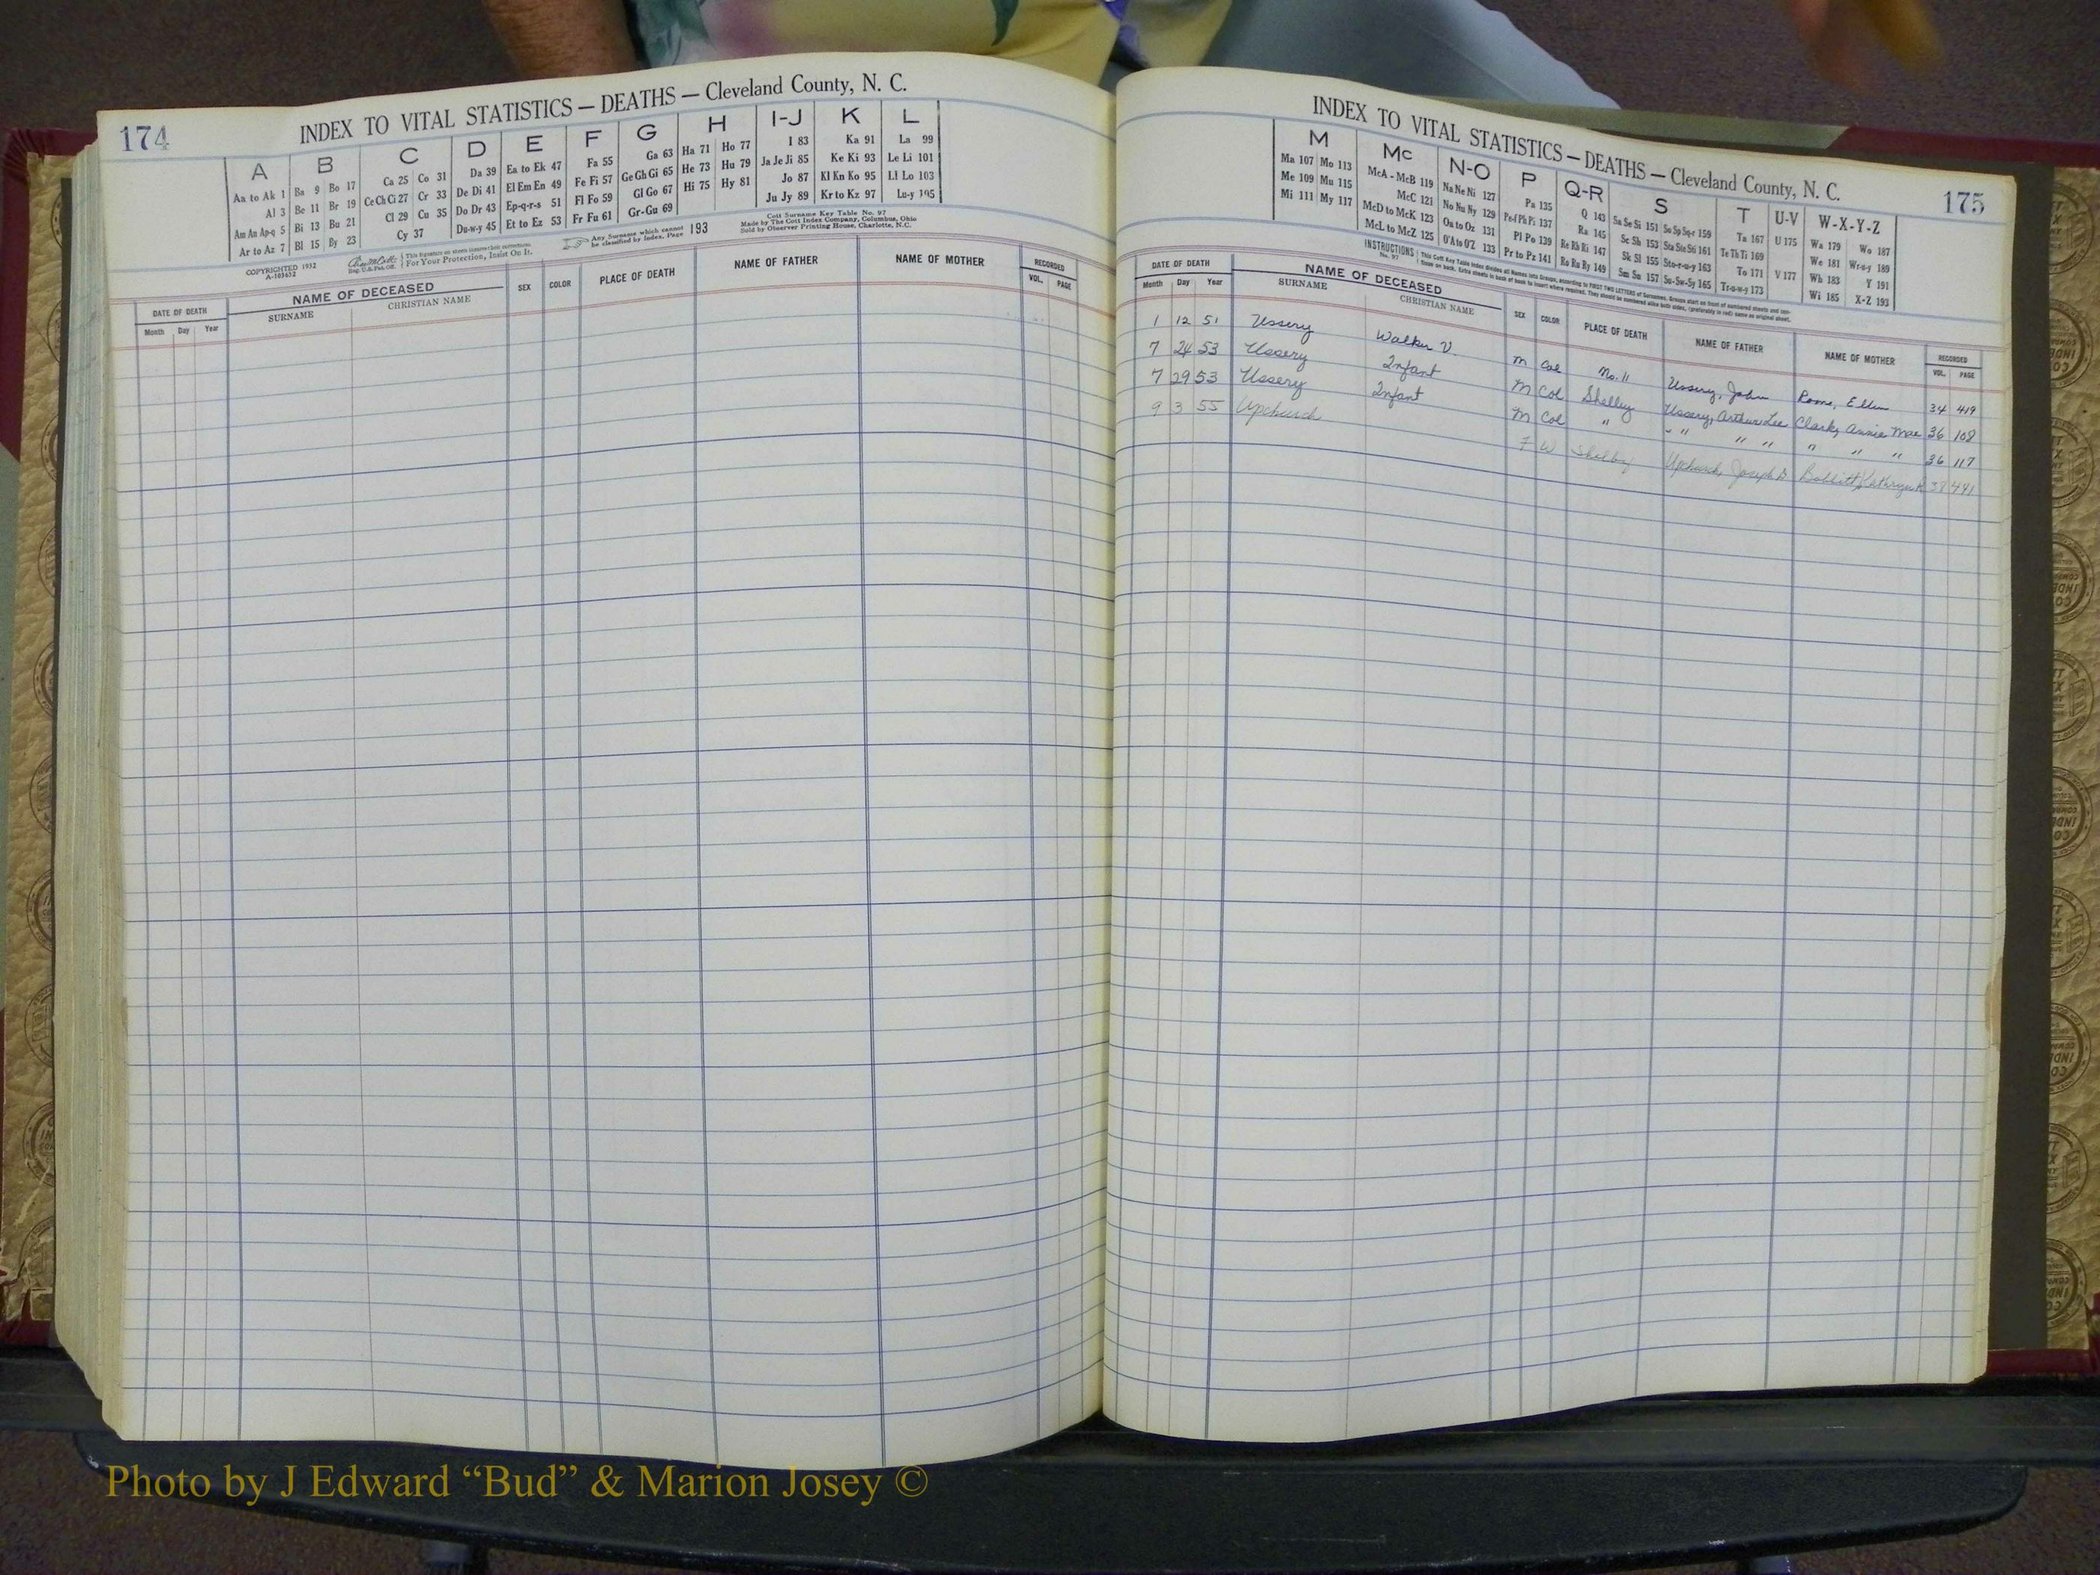 174
INDEX TO VITAL STATISTICS — DEATHS — Cleveland County, N. C.
A B C D E F G H I-J K L
Aa to Ak 1 Ba 9 Bo 17 Ca 25 Co 31 Da 39 Ea to Ek 47 Fa 55 Ga 63 Ha 71 Ho 77 I 83 Ka 91 La 99
Al 3 Be 11 Br 19 Ce Ch Ci 27 Cr 33 De Di 41 El Em En 49 Fe Fi 57 Ge Gh Gi 65 He 73 Hu 79 Ja Je Ji 85 Ke Ki 93 Le Li 101
Am An Ap-q 5 Bi 13 Bu 21 Cl 29 Cu 35 Do Dr 43 Ep-q-r-s 51 Fl Fo 59 Gl Go 67 Hi 75 Hy 81 Jo 87 Kl Kn Ko 95 Ll Lo 103
Ar to Az 7 Bl 15 By 23 Cy 37 Du-w-y 45 Et to Ez 53 Fr Fu 61 Gr-Gu 69 Ju Jy 89 Kr to Kz 97 Lu-y 105
COPYRIGHTED 1932
A-103652
Reg. U.S. Pat. Off.
This signature on sheets insures their correctness.
For Your Protection, Insist On It.
Any Surname which cannot
be classified by Index, Page 193
Cott Surname Key Table No. 97
Made by The Cott Index Company, Columbus, Ohio
Sold by Observer Printing House, Charlotte, N.C.
DATE OF DEATH NAME OF DECEASED SEX COLOR PLACE OF DEATH NAME OF FATHER NAME OF MOTHER RECORDED
Month Day Year SURNAME CHRISTIAN NAME VOL. PAGE
INDEX TO VITAL STATISTICS — DEATHS — Cleveland County, N. C.
175
M Mc N-O P Q-R S T U-V W-X-Y-Z
Ma 107 Mo 113 McA - McB 119 Na Ne Ni 127 Pa 135 Q 143 Sa Se Si 151 So Sp Sq-r 159 Ta 167 U 175 Wa 179 Wo 187
Me 109 Mu 115 McC 121 No Nu Ny 129 Pe-f Ph Pi 137 Ra 145 Sc Sh 153 Sta Ste Sti 161 Te Th Ti 169 We 181 Wr-u-y 189
Mi 111 My 117 McD to McK 123 Oa to Oz 131 Pl Po 139 Re Rh Ri 147 Sk Sl 155 Sto-r-u-y 163 To 171 V 177 Wh 183 Y 191
McL to McZ 125 O'A to O'Z 133 Pr to Pz 141 Ro Ru Ry 149 Sm Sn 157 Su-Sw-Sy 165 Tr-u-w-y 173 Wi 185 X-Z 193
INSTRUCTIONS
No. 97
This Cott Key Table Index divides all Names into Groups, according to FIRST TWO LETTERS of Surnames.
DATE OF DEATH NAME OF DECEASED SEX COLOR PLACE OF DEATH NAME OF FATHER NAME OF MOTHER RECORDED
Month Day Year SURNAME CHRISTIAN NAME VOL. PAGE
1 12 51 Ussery Walker V. M Col No. 11 Ussery, John Ellen 34 419
7 24 53 Ussery Infant M Col Shelby Ussery, Arthur Lee Clark, Annie Mae 36 108
7 29 53 Ussery Infant M Col " " " " " " " 36 117
9 3 55 Upchurch F W Shelby Upchurch, Joseph D Kathryn 38 441
Photo by J Edward “Bud” & Marion Josey ©